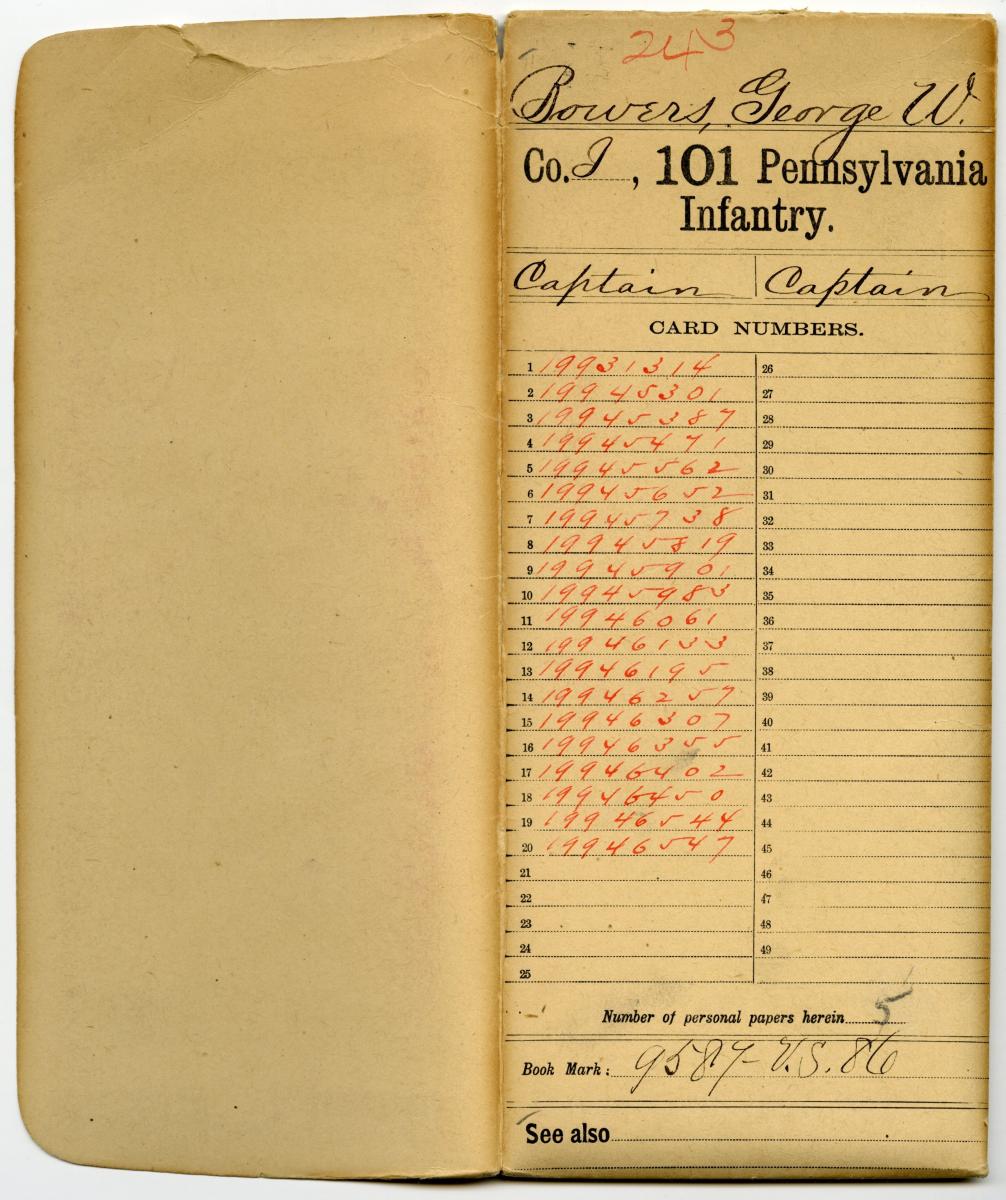 243
Bowers, George W.
Co. I, 101 Pennsylvania
Infantry.
Captain Captain
CARD NUMBERS.
1 19931314 26
2 19945301 27
3 19945387 28
4 19945471 29
5 19945562 30
6 19945652 31
7 19945738 32
8 19945819 33
9 19945901 34
10 19945983 35
11 19946061 36
12 19946133 37
13 19946195 38
14 19946257 39
15 19946307 40
16 19946355 41
17 19946402 42
18 19946450 43
19 19946544 44
20 19946547 45
21 46
22 47
23 48
24 49
25
Number of personal papers herein 5
Book Mark: 9587-V.S.86
See also